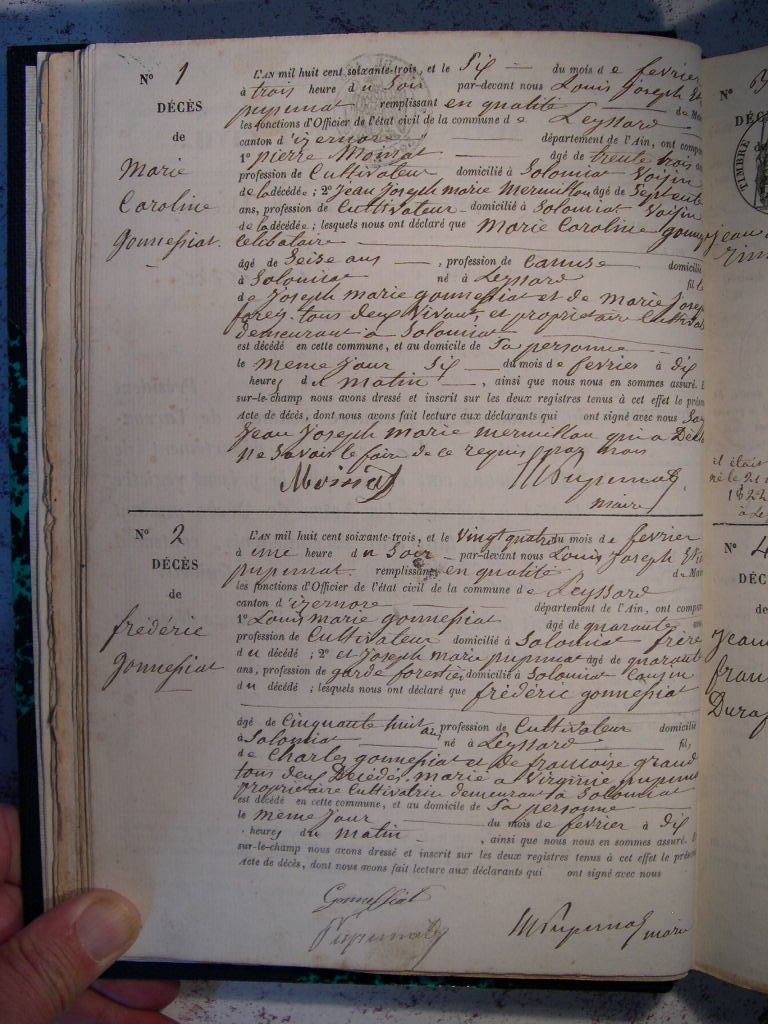 N° 1
DÉCÈS
de
Marie
Caroline
gonnessiat.
L'AN mil huit cent soixante-trois, et le Six du mois de fevrier
à trois heure du Soir par-devant nous Louis Joseph
pupunat remplissant en qualité de
les fonctions d'Officier de l'état civil de la commune de Leyssard
canton d'izernore département de l'Ain, ont comp
1° pierre Moinat âgé de trente trois
profession de Cultivateur domicilié à Solomiat Voisin
de la décédée; 2° Jean Joseph marie mermillou âgé de Septente
ans, profession de Cultivateur domicilié à Solomiat Voisin
de la décédée; lesquels nous ont déclaré que Marie Caroline
Celibataire
âgé de Seise ans, profession de domicilié
à Solomiat né à Leyssard fil
de Joseph marie gonnessiat et de marie
forez tous deux Vivant, et propriétaire
demeurant à Solomiat
est décédé en cette commune, et au domicile de Sa personne
le meme Jour Six du mois de fevrier à dix
heures du matin, ainsi que nous nous en sommes assuré.
sur-le-champ nous avons dressé et inscrit sur les deux registres tenus à cet effet le prése
Acte de décès, dont nous avons fait lecture aux déclarants qui ont signé avec nous
Jean Joseph marie mermillou qui a
ne Savoir le faire de ce requis par nous
maire
N° 2
DÉCÈS
de
frédéric
gonnessiat
L'AN mil huit cent soixante-trois, et le Vingt quatre du mois de fevrier
à une heure du Soir par-devant nous Louis Joseph
pupunat remplissant en qualité de
les fonctions d'Officier de l'état civil de la commune de Leyssard
canton d'izernore département de l'Ain, ont compar
1° Louis marie gonnessiat âgé de quarante
profession de Cultivateur domicilié à Solomiat frère
du décédé; 2° et Joseph marie pupunat âgé de quarante
ans, profession de garde forestier domicilié à Solomiat Cousin
du décédé; lesquels nous ont déclaré que frédéric gonnessiat
âgé de Cinquante huit ans, profession de Cultivateur domicilié
à Solomiat né à Leyssard fil
de Charles gonnessiat et de francoise grand
tous deux Décédés, marié a Virginie
propriétaire Cultivatrice demeurant a Solomiat
est décédé en cette commune, et au domicile de Sa personne
le meme Jour du mois de fevrier à dix
heures du matin, ainsi que nous nous en sommes assuré.
sur-le-champ nous avons dressé et inscrit sur les deux registres tenus à cet effet le prése
Acte de décès, dont nous avons fait lecture aux déclarants qui ont signé avec nous
Gonnessiat
maire
N°
DÉC
TIMBRE
il était
né le 21
1822
N° 4
DÉC
de
Jean
fran